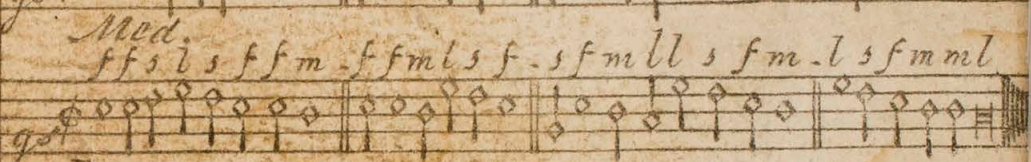 Med.
f f s l s f f m - f f m l s f - s f m l l s f m - l s f m m l
gs